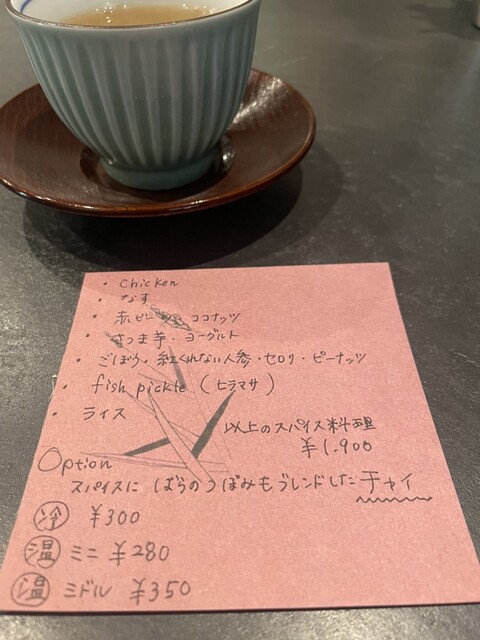 ・ Chicken
・ なす
・ 赤ビーツ ココナッツ
・ さつま芋・ヨーグルト
・ ごぼう・紅くれない人参・セロリ・ピーナッツ
・ fish pickle (ヒラマサ)
・ ライス
以上のスパイス料理
¥1,900
Option
スパイスに ばらのつぼみもブレンドしたチャイ
冷 ¥300
温 ミニ ¥280
温 ミドル ¥350